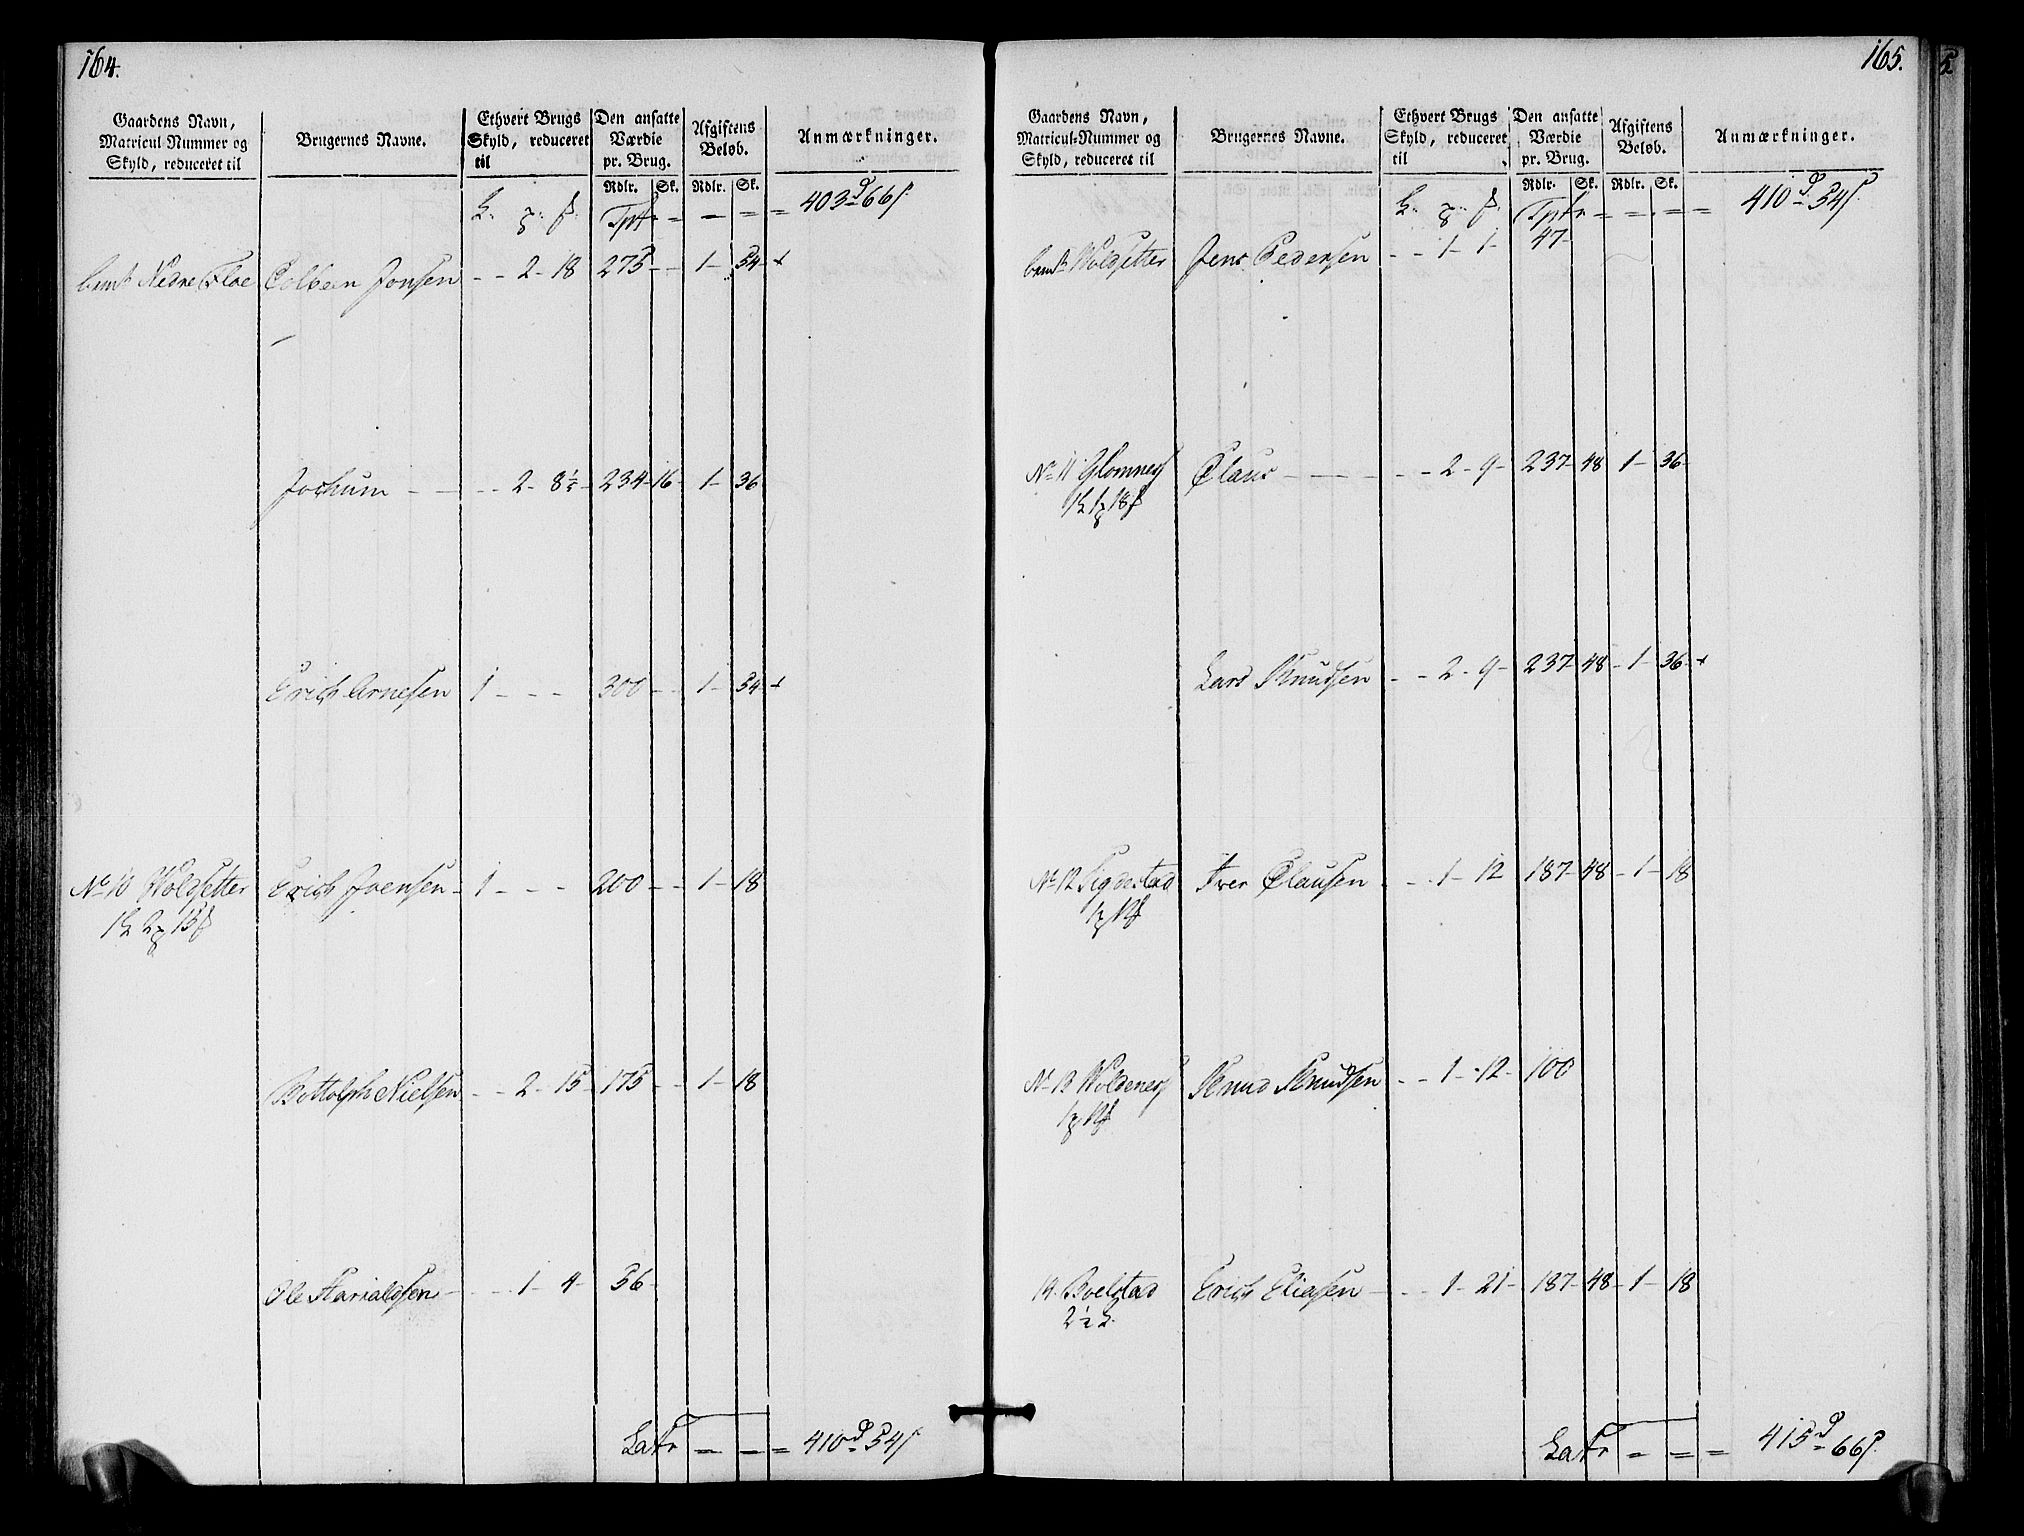 164.
Gaardens Navn, Matricul-Nummer og Skyld, reduceret til | Brugernes Navne. | Ethvert Brugs Skyld, reduceret til | Den ansatte Værdie pr. Brug. | Afgiftens Beløb. | Anmærkninger.
Rdlr. Sk. Rdlr. Sk.
Tpt = - = = 403 d 66 s.
Nedre Floe Colbeen Jonsen - - 2 - 18 275 - - 1 - 54 - +
Jochum - - - - 2 - 8½ - 234 - 16 - 1 - 36
Erich Arnesen 1 - - - 300 - - 1 - 54 - +
No 10 Woldsetter Erich Joensen - 1 - - - 200 - - 1 - 18
Bottolph Nielsen - - 2 - 15 - 175 - - 1 - 18
Ole Harialdsen - - - 1 - 4 - 56 -
Latr = - = = 410 d 54 s
165.
Gaardens Navn, Matricul-Nummer og Skyld, reduceret til | Brugernes Navne. | Ethvert Brugs Skyld, reduceret til | Den ansatte Værdie pr. Brug. | Afgiftens Beløb. | Anmærkninger.
Rdlr. Sk. Rdlr. Sk.
Tptr = = = = 410 d 54 s.
Woldsetter Jens Pedersen - - 1 - 1 - 47 -
No 11 Glomnes Claus - - - - - - 2 - 9 - 237 - 48 - 1 - 36 -
Lars Knudsen - - 2 - 9 - 237 - 48 - 1 - 36 - +
No 12 Sigdestad Iver Clausen - - - 1 - 12 187 - 48 - 1 - 18
No 13 Woldenes Knud Knudsen - - 1 - 12 - 100
14. Boelstad Erich Eliasen - - - 1 - 21 - 187 - 48 - 1 - 18
Latr = = = 415 d 66 s.
5